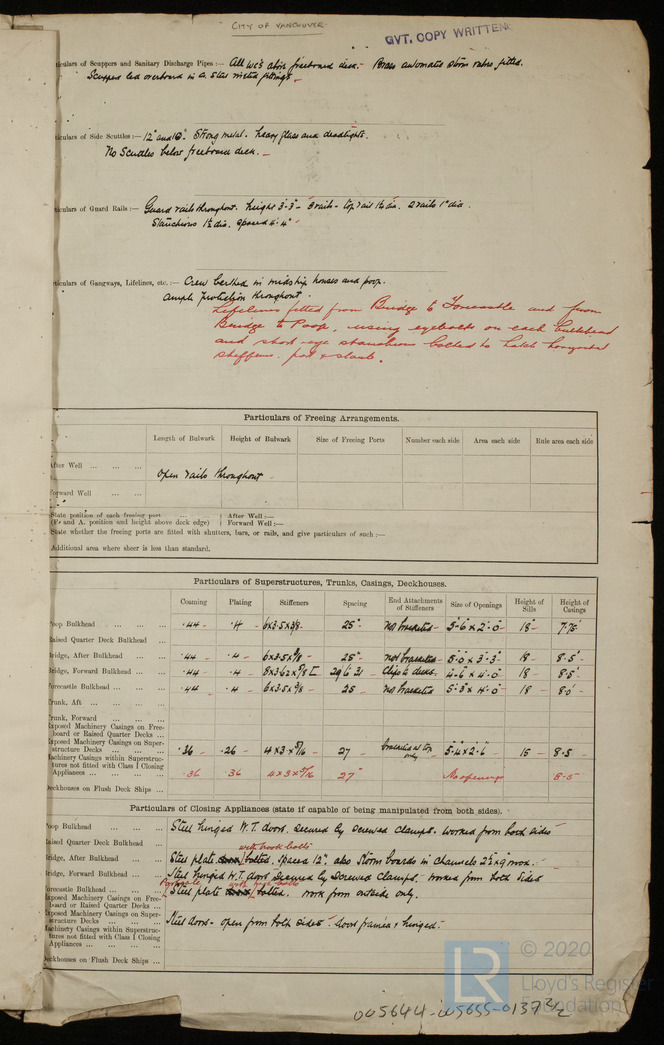 CITY OF VANCOUVER.
GVT. COPY WRITTEN
ticulars of Scuppers and Sanitary Discharge Pipes :— All WC's above freeboard deck. - Brass automatic storm valves fitted.
Scuppers led overboard in C. Steel riveted fittings. -
ticulars of Side Scuttles :— 12" and 10". Strong metal. heavy glass and deadlights.
No Scuttles below freeboard deck. -
ticulars of Guard Rails :— Guard rails throughout. height 3'-3" - 3 rails - top rail 1½ dia. 2 rails 1" dia.
Stanchions 1½ dia. spaced 4'-4"
ticulars of Gangways, Lifelines, etc. :— Crew berthed in midship houses and poop.
Ample protection throughout.
Lifelines fitted from Bridge to Forecastle and from
Bridge to Poop, using eyebolts on each bulkhead
and short eye stanchions bolted to hatch horizontal
stiffeners. port & starb.
Particulars of Freeing Arrangements.
Length of Bulwark Height of Bulwark Size of Freeing Ports Number each side Area each side Rule area each side
After Well ... ... ...
Open rails throughout
Forward Well ... ...
State position of each freeing port ... ... After Well :—
(F. and A. position and height above deck edge) Forward Well :—
State whether the freeing ports are fitted with shutters, bars, or rails, and give particulars of such :—
Additional area where sheer is less than standard.
Particulars of Superstructures, Trunks, Casings, Deckhouses.
Coaming Plating Stiffeners Spacing End Attachments of Stiffeners Size of Openings Height of Sills Height of Casings
Poop Bulkhead ... ... .44 - .4 - 6x3.5x3/8 25" not bracketed 5'-6 x 2'-0 18" - 7.75'
Raised Quarter Deck Bulkhead ...
Bridge, After Bulkhead ... .44 .4 - 6x3.5x3/8 - 25" - not bracketed 5'-0 x 3'-3" 18 - 8.5' -
Bridge, Forward Bulkhead ... .44 - .4 - 29 & 31 - clips to decks 4'-6 x 4'-0 18 - 8.5'
Forecastle Bulkhead ... .44 - .4 - 6x3.5x3/8 25 - not bracketed 5'-3 x 4'-0 18 - 8.0'
Trunk, Aft ... ...
Trunk, Forward ... ...
Exposed Machinery Casings on Free-
board or Raised Quarter Decks ...
Exposed Machinery Casings on Super-
structure Decks ... ... .36 - .26 - 4 x 3 x 5/16 27 - bracketed at top only 5'-4 x 2'-6 15 - 8.5 -
Machinery Casings within Superstruc-
tures not fitted with Class I Closing
Appliances ... ... .36 .36 4 x 3 x 5/16 27" No openings 8.5
Deckhouses on Flush Deck Ships ...
Particulars of Closing Appliances (state if capable of being manipulated from both sides).
Poop Bulkhead ... ... Steel hinged W.T. doors. secured by screwed clamps. worked from both sides
Raised Quarter Deck Bulkhead
with hook bolts
Bridge, After Bulkhead ... Steel plate bolted. spaced 12". also storm boards in channels
Bridge, Forward Bulkhead ... Steel hinged W.T. doors secured by screwed clamps. - worked from both sides
Portable with
Forecastle Bulkhead ... Steel plate bolted. work from outside only.
Exposed Machinery Casings on Free-
board or Raised Quarter Decks ...
Exposed Machinery Casings on Super-
structure Decks ... ... Steel doors - open from both sides - doors framed & hinged. -
Machinery Casings within Superstruc-
tures not fitted with Class I Closing
Appliances ... ...
Deckhouses on Flush Deck Ships ...
LR © 2020
Lloyd's Register
Foundation
005644-005655-0137 2/2